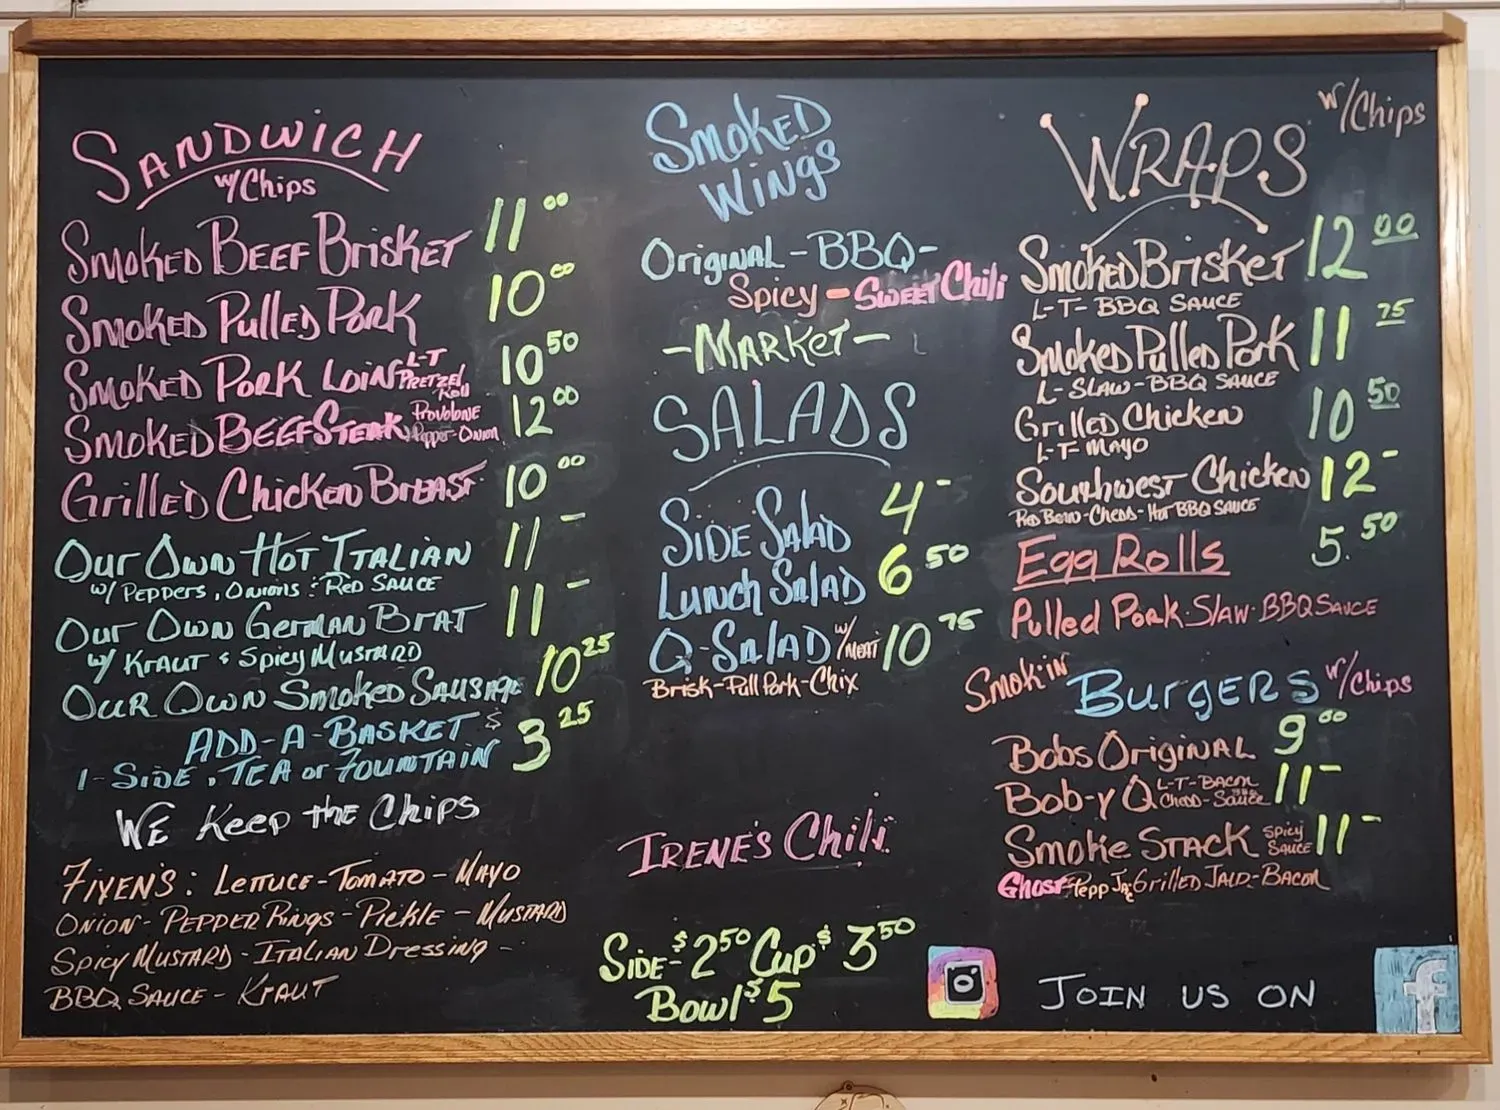 SANDWICH
w/Chips
Smoked Beef Brisket 11 00
Smoked Pulled Pork 10 00
Smoked Pork Loin L-T Pretzel Roll 10 50
Smoked BeefSteak Provolone Pepper-Onion 12 00
Grilled Chicken Breast 10 00
Our Own Hot Italian 11 -
w/ Peppers, Onions : Red Sauce
Our Own German Brat 11 -
w/ Kraut & Spicy Mustard
Our Own Smoked Sausage 10 25
Add-A-Basket $ 3 25
1-Side, Tea or Fountain
We Keep the Chips
Fixen's: Lettuce-Tomato-Mayo
Onion-Pepper Rings-Pickle-Mustard
Spicy Mustard-Italian Dressing-
BBQ Sauce-Kraut
Smoked
Wings
Original-BBQ-
Spicy-Sweet Chili
-Market-
SALADS
Side Salad 4 -
Lunch Salad 6 50
Q-Salad w/ Meat 10 75
Brisk-Pull Pork-Chix
Irene's Chili
Side-$2 50 Cup $3 50
Bowl $5
WRAPS w/Chips
Smoked Brisket 12 00
L-T-BBQ Sauce
Smoked Pulled Pork 11 75
L-Slaw-BBQ Sauce
Grilled Chicken 10 50
L-T-Mayo
Southwest Chicken 12 -
Hot BBQ Sauce
Egg Rolls 5.50
Pulled Pork-Slaw-BBQ Sauce
Smok'in Burgers w/Chips
Bobs Original 9 00
Bob-y Q L-T-Bacon Ched-BBQ Sauce 11 -
Smoke Stack Spicy Sauce 11 -
Ghost Pepp Ja-Grilled Jala-Bacon
Join us on
f